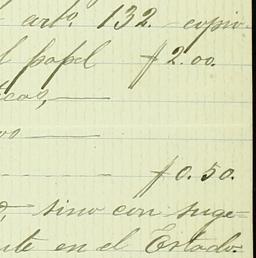 arto. 132. copia-
l papel $2.00.
icas,
oo
$0.50.
sino con suge-
nte en el Estado.